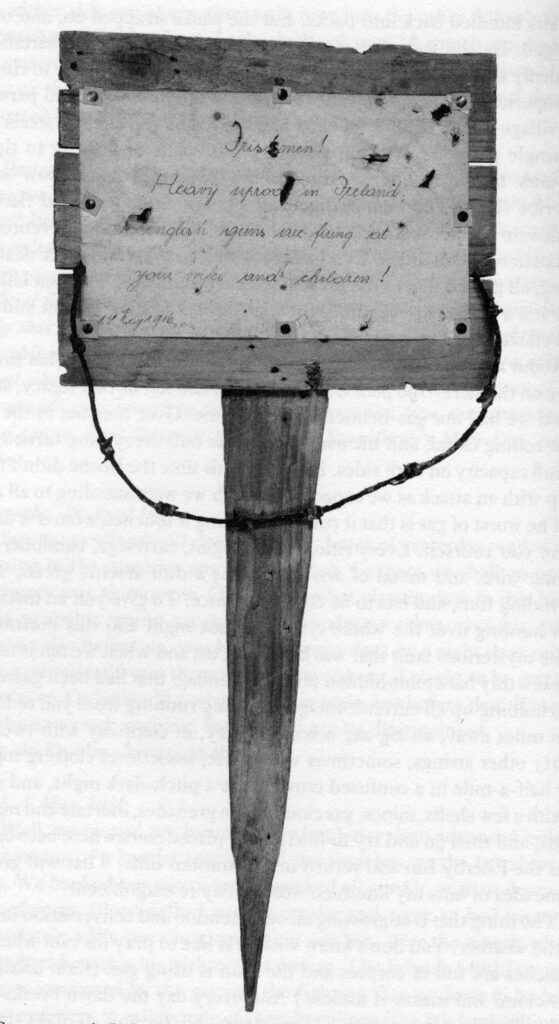 Irishmen!
Heavy uproar in Ireland;
english guns are firing at
your wifes and children!
1st May 1916.